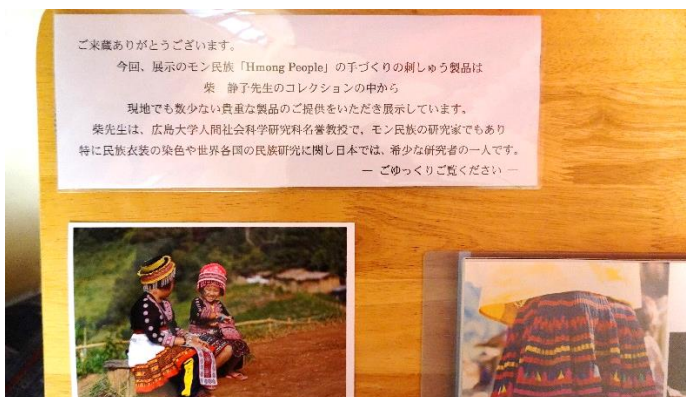 ご来蔵ありがとうございます。
今回、展示のモン民族「Hmong People」の手づくりの刺しゅう製品は
柴　静子先生のコレクションの中から
現地でも数少ない貴重な製品のご提供をいただき展示しています。
柴先生は、広島大学人間社会科学研究科名誉教授で、モン民族の研究家でもあり
特に民族衣装の染色や世界各国の民族研究に関し日本では、希少な研究者の一人です。
― ごゆっくりご覧ください ―